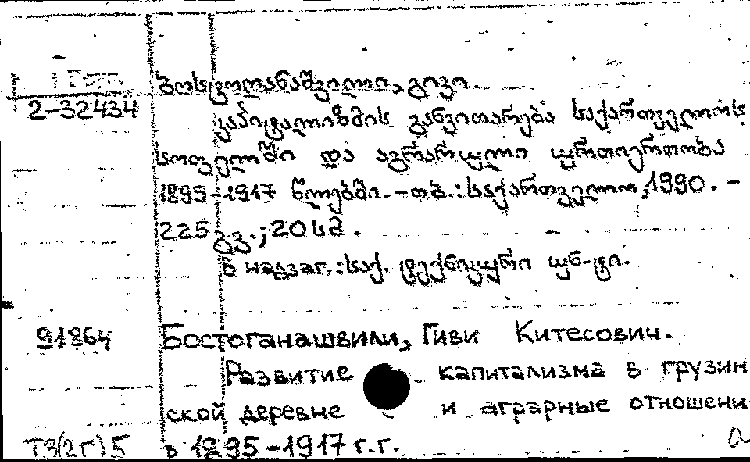 ბოსტოღანაშვილი, გივი
2-32434
კაპიტალიზმის განვითარება საქართველოს
სოფელში და აგრარული ურთიერთობა
1895-1917 წლებში. - თბ.: საქართველო, 1990. -
225 გვ.; 20 სმ.
В надзаг.: საქ. ტექნიკური უნ-ტი.
91864 Бостоганашвили, Гиви Китесович.
Развитие капитализма в грузин
ской деревне и аграрные отношени
Т3(2Г)5 в 1895-1917 г.г.